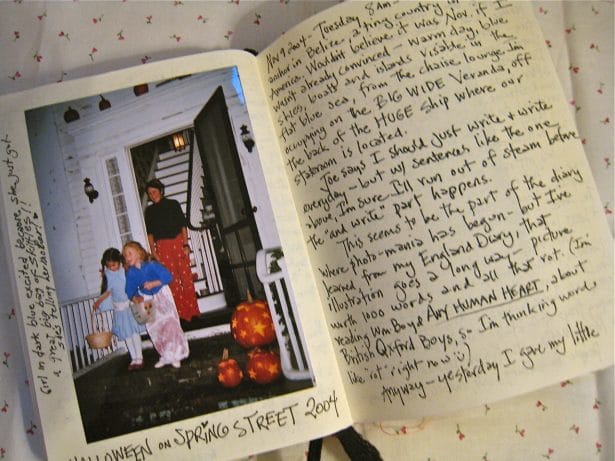 Girl in dark blue excited because she just got
a great big bag of
telling
HALLOWEEN on SPRING STREET 2004
2004 - Tuesday, 8am -
anchor in Belize, a tiny country in
America. Wouldn't believe it was Nov. if I
wasn't already convinced - warm day, blue
skies, boats and islands visible in the
flat blue sea, from the chaise lounge I'm
occupying on the BIG WIDE Veranda, off
the back of the HUGE ship where our
stateroom is located.
Joe says I should just write & write
everyday - but w/ sentences like the one
above, I'm sure I'll run out of steam before
the "and write" part happens.
This seems to be the part of the diary
where photo-mania has begun - but I've
learned, from my England Diary, that
illustration goes a long way - picture
worth 1000 words and all that rot. (I'm
reading Wm Boyd ANY HUMAN HEART, about
British Oxford Boys, so I'm thinking words
like 'rot' right now :)
Anyway - yesterday I gave my little